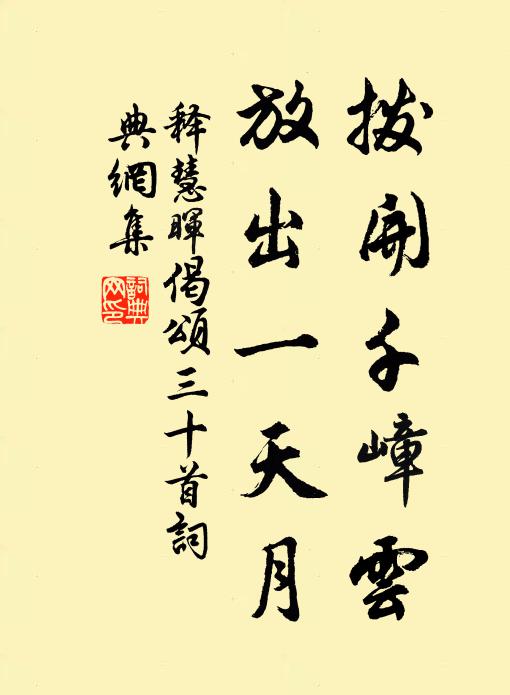 撥開千嶂雲
放出一天月
释慧暉偈頌三十首詞
典網集
詞典网印